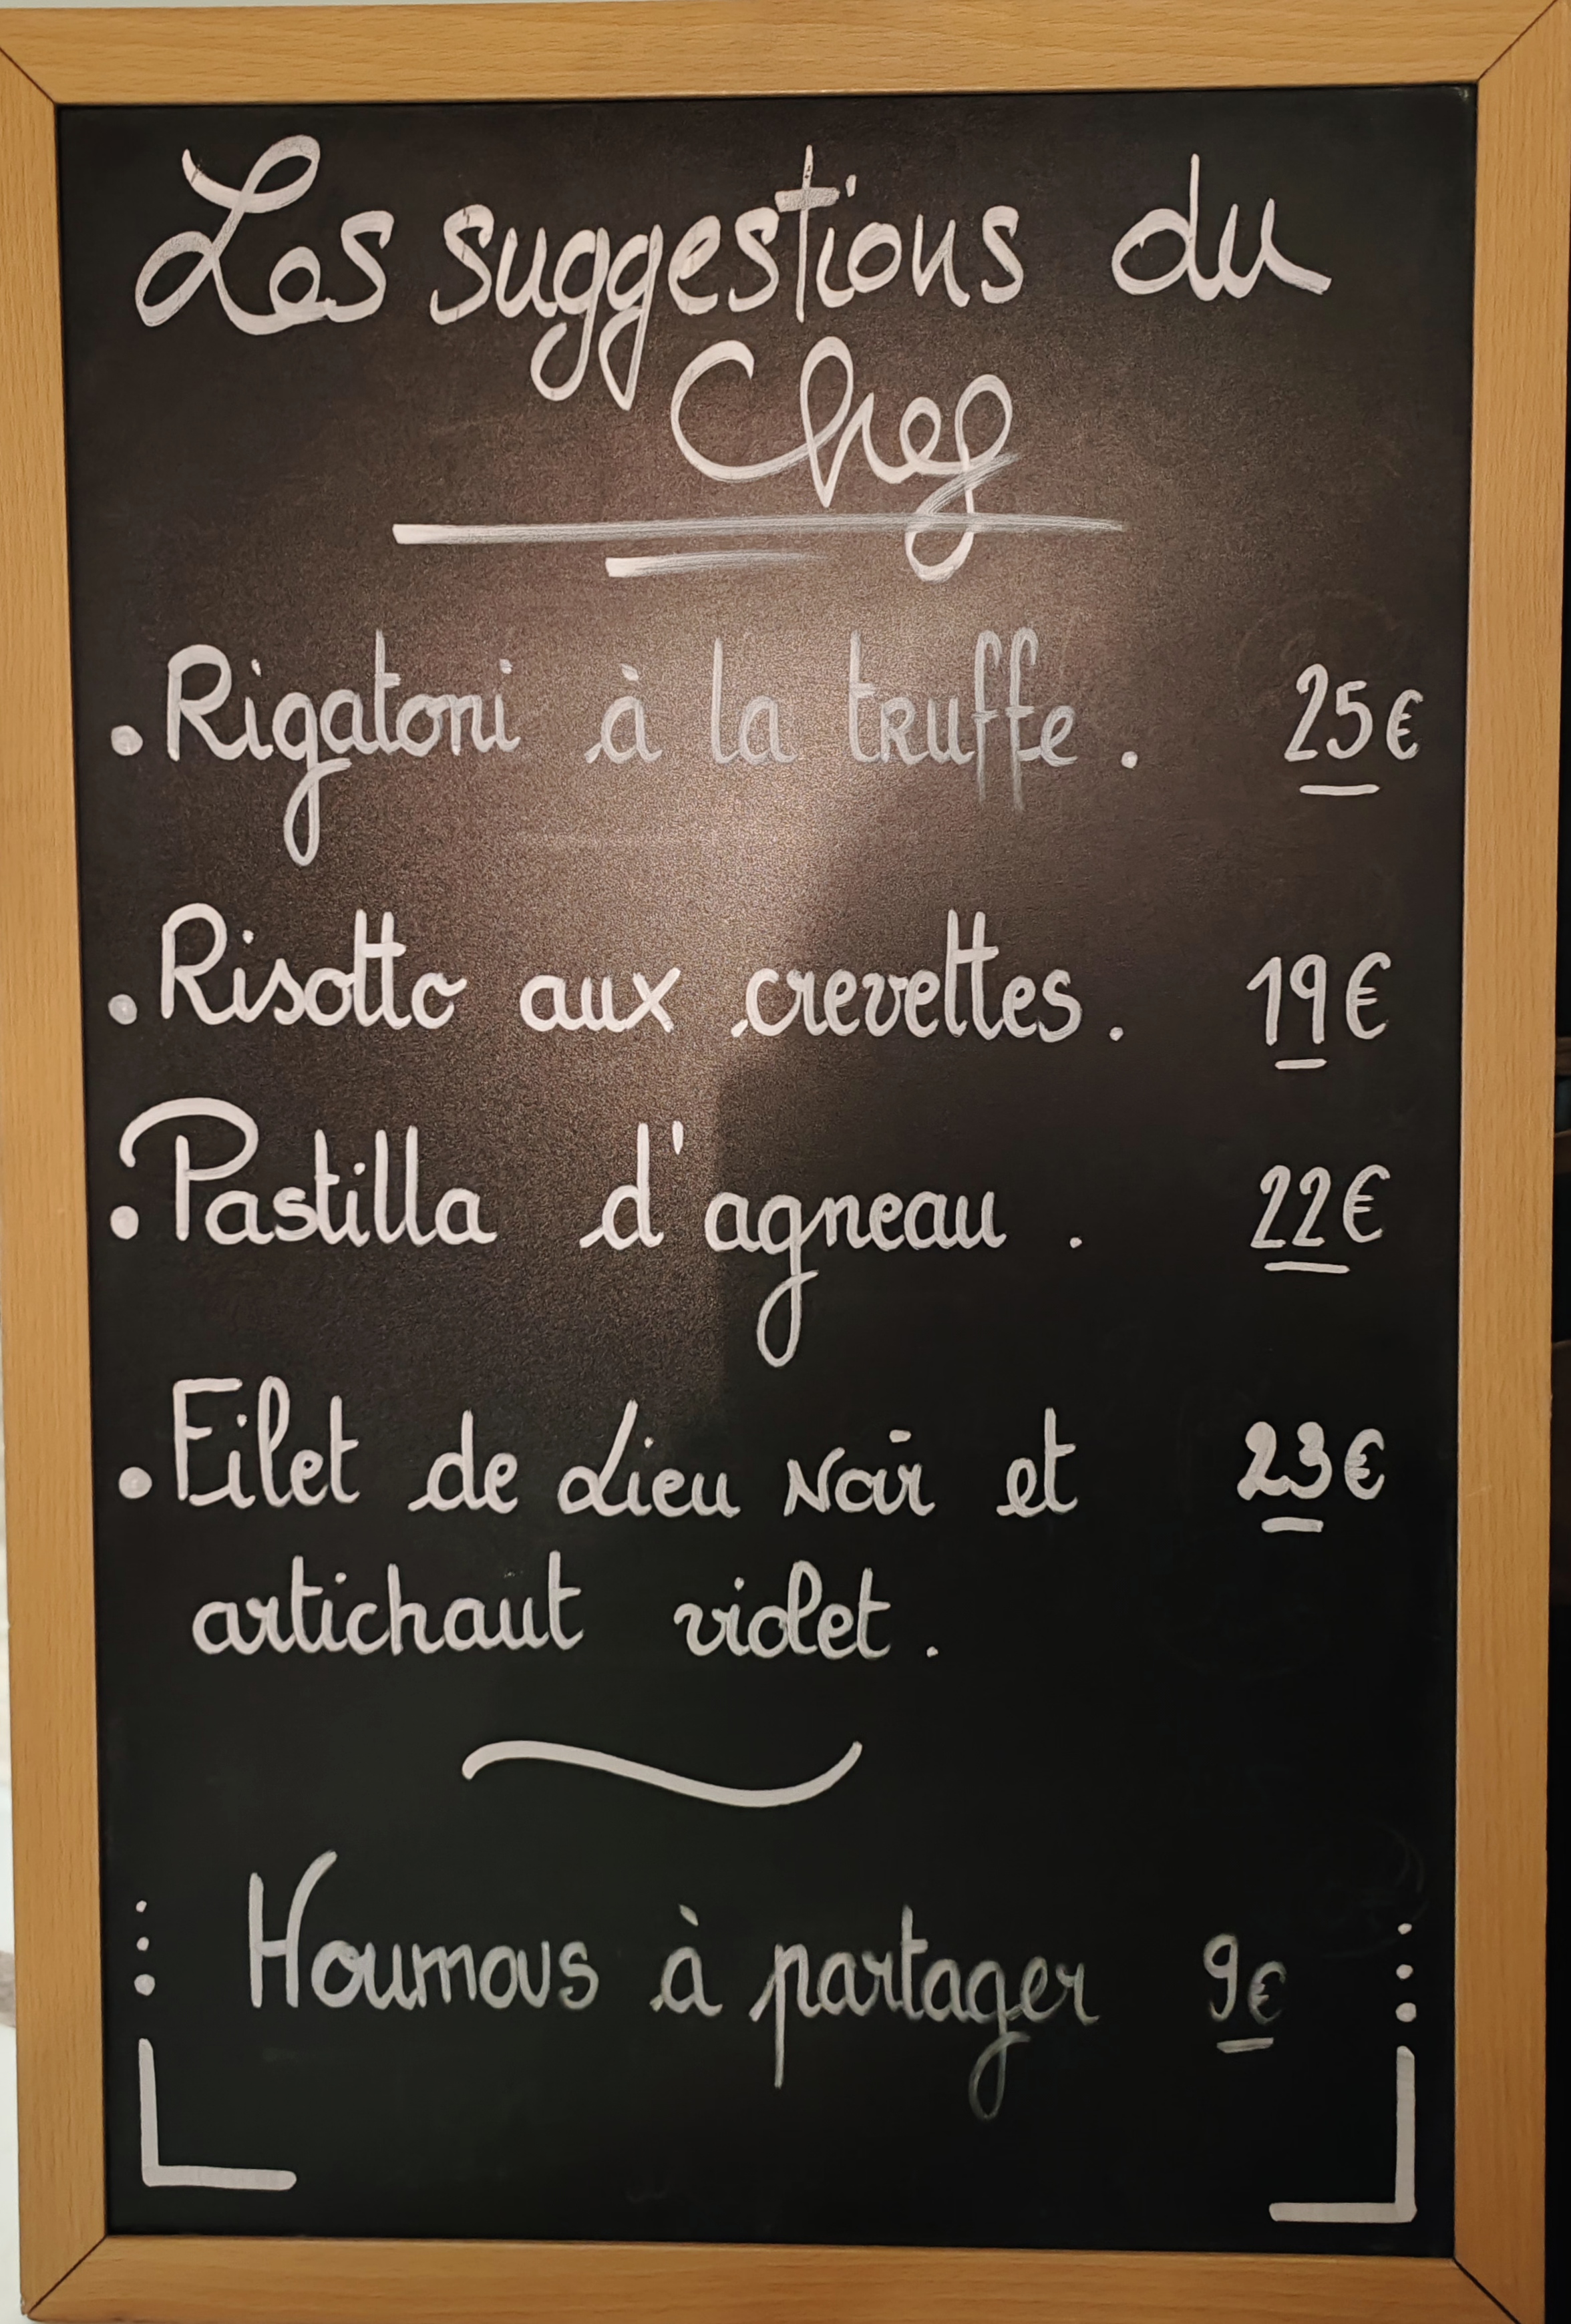 Les suggestions du
Chef
• Rigatoni à la truffe. 25€
• Risotto aux crevettes. 19€
• Pastilla d'agneau. 22€
• Filet de Lieu Noir et 23€
artichaut violet.
Houmous à partager 9€